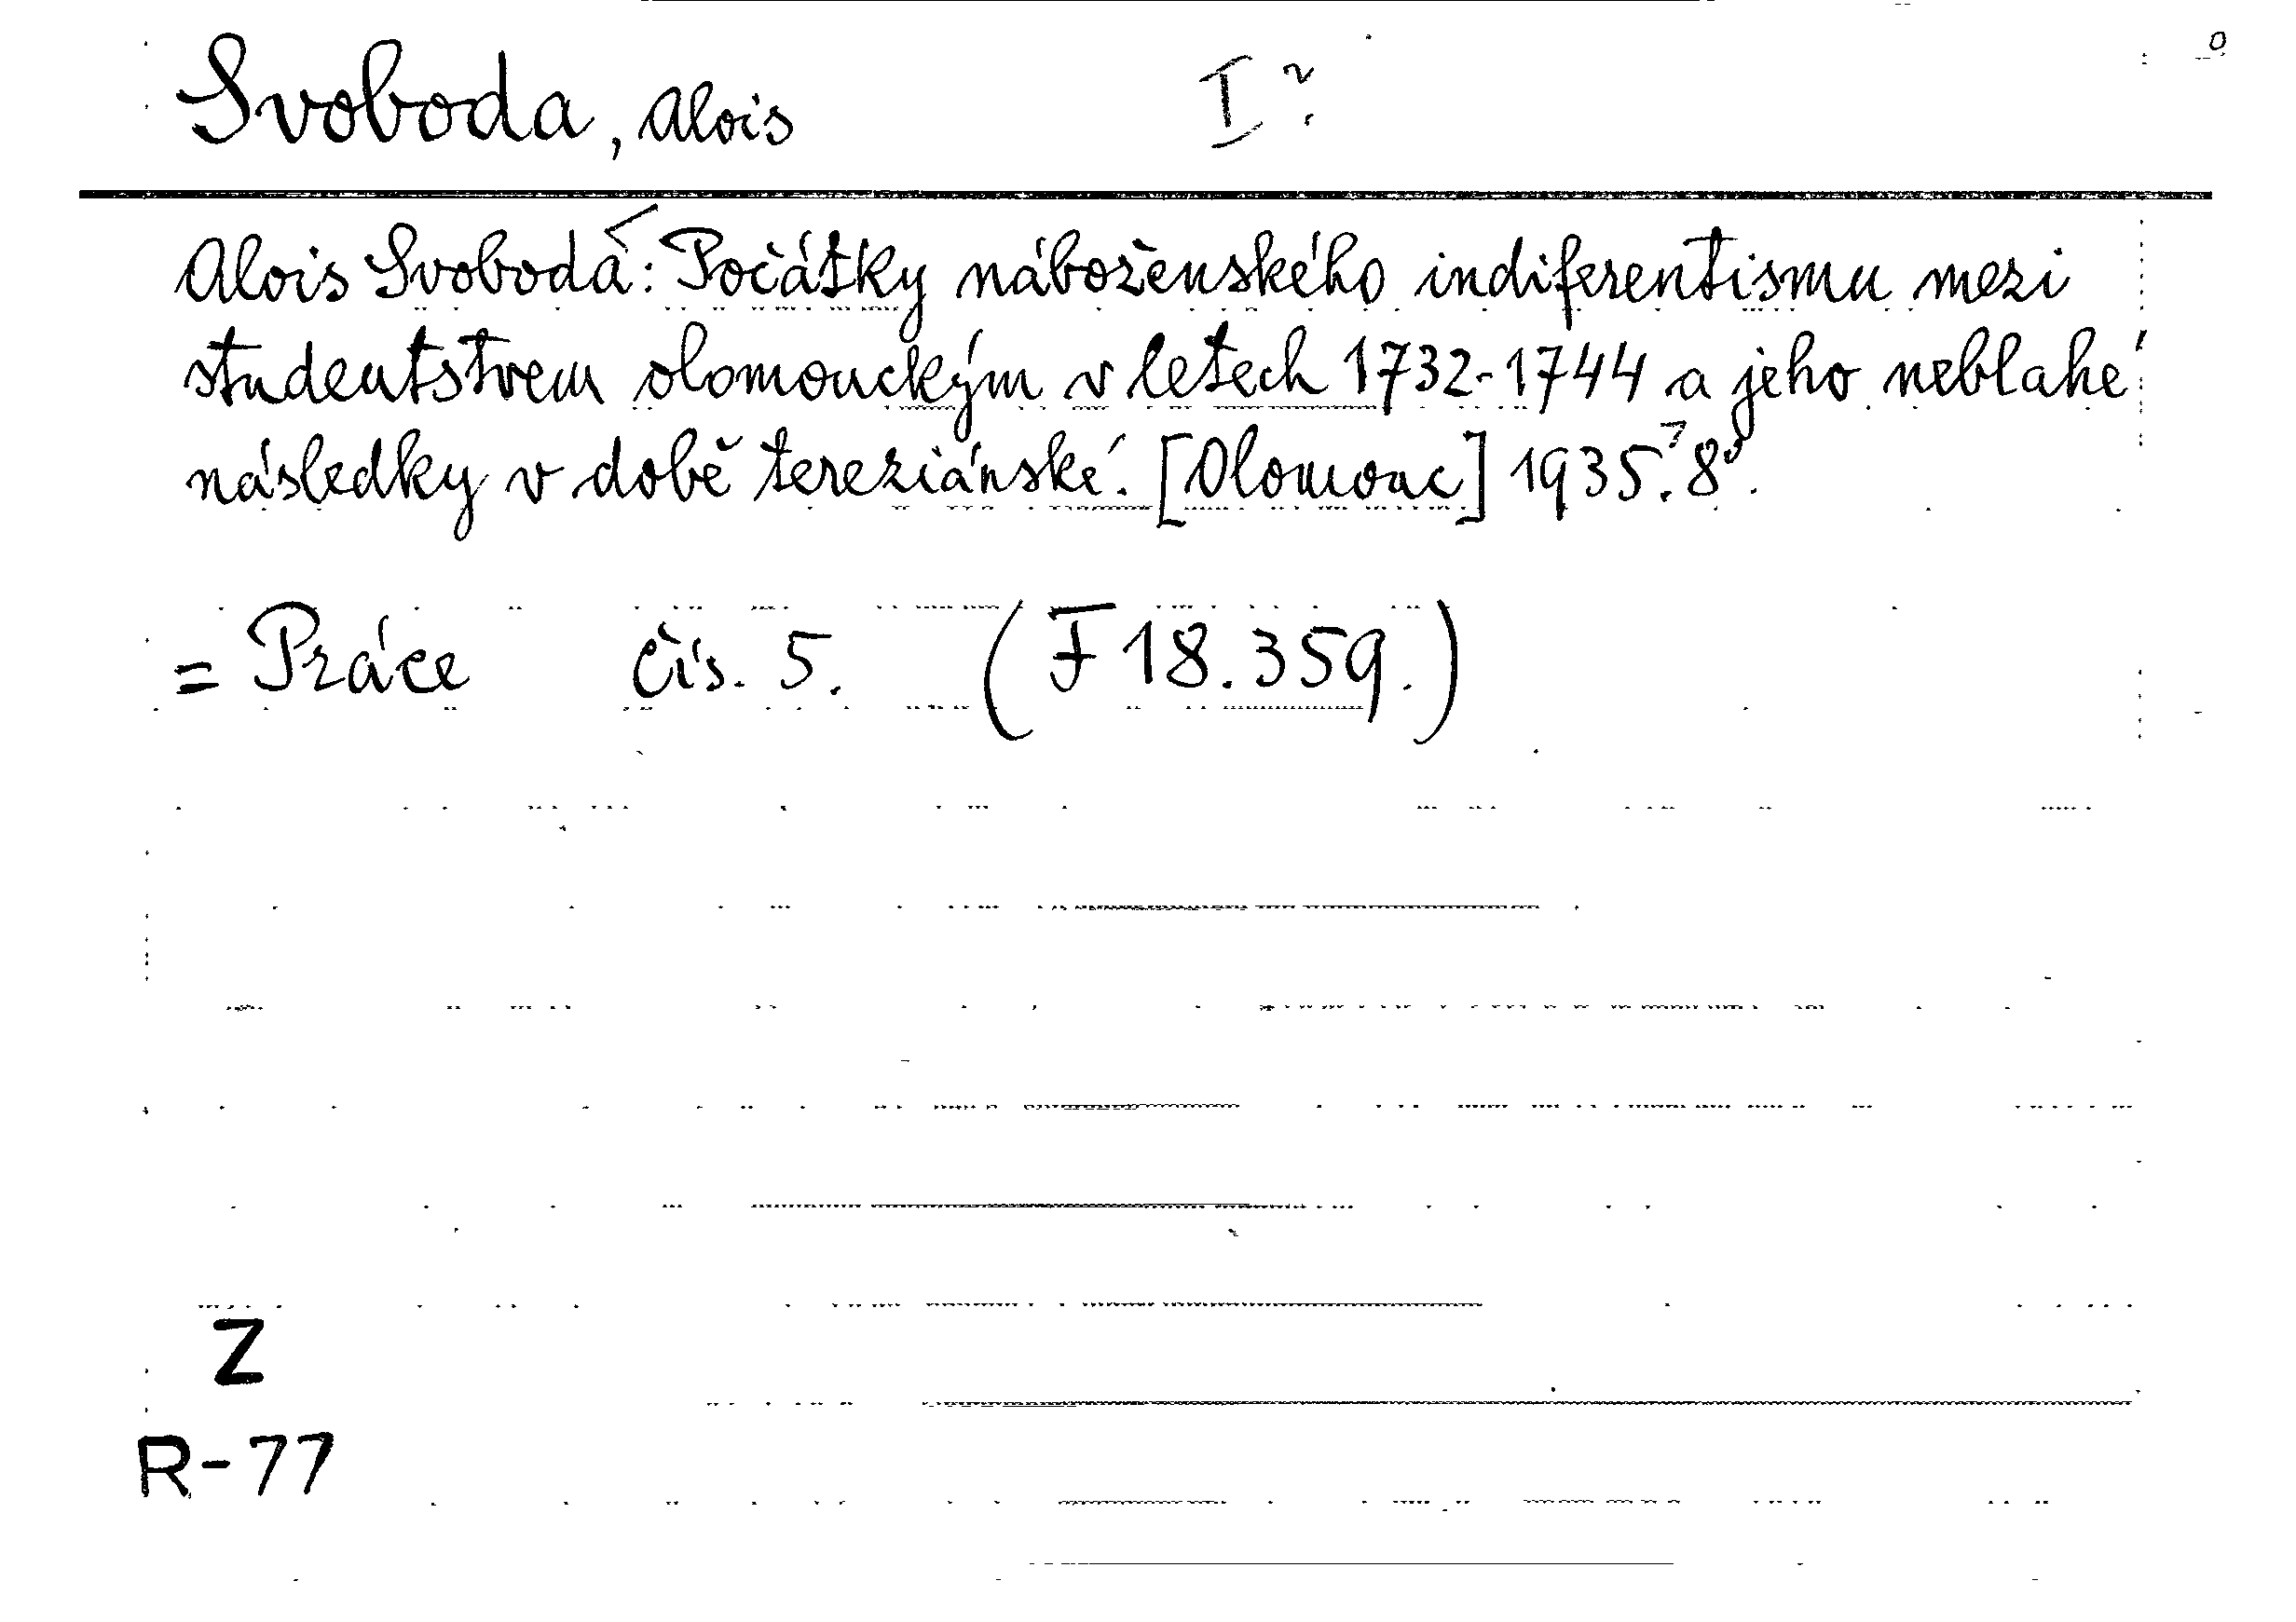 Svoboda, Alois I?
Alois Svoboda: Počátky náboženského indiferentismu mezi
studentstvem olomouckým v letech 1732-1744 a jeho neblahé
následky v době tereziánské. [Olomouc] 1935. 8°.
= Práce čís. 5. (F 18.359.)
Z
R-77